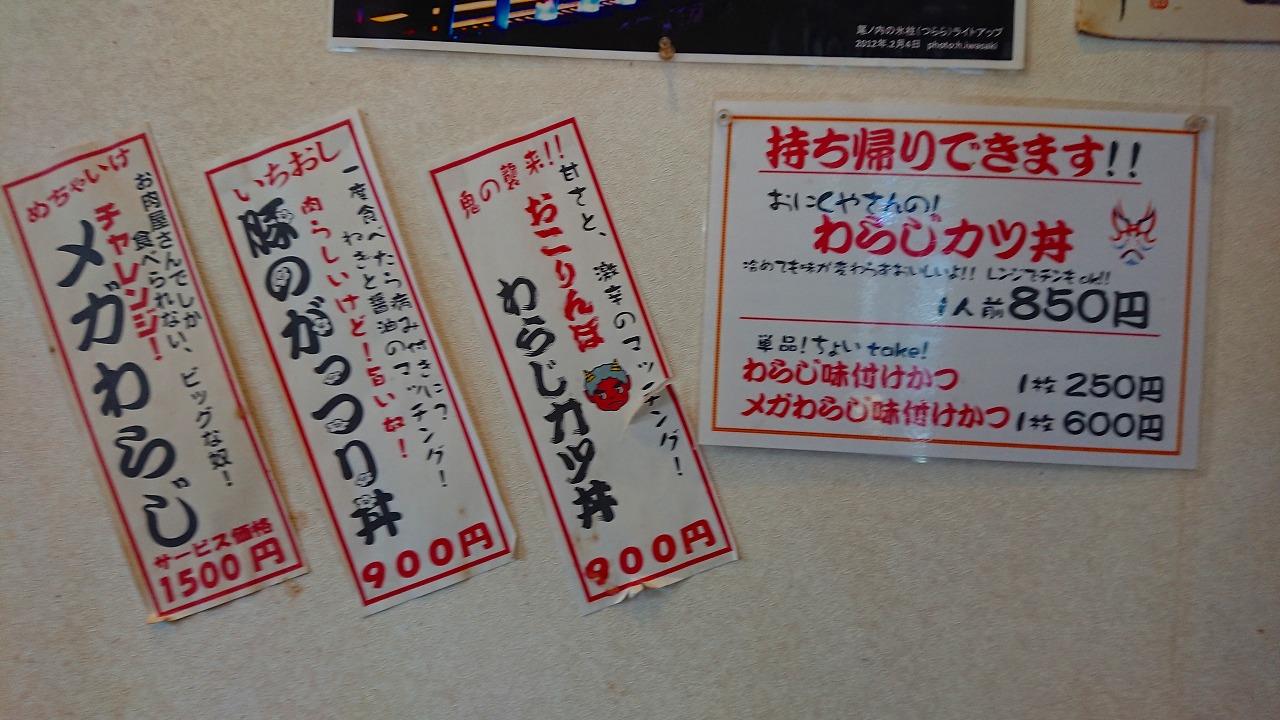 尾ノ内の氷柱(つらら)ライトアップ
2012年.2月4日 photo:h.iwasaki
めちゃいけ
お肉屋さんでしか
食べられない、ビッグな奴!
チャレンジ!
メガわらじ
サービス価格
1500円
いちおし
一度食べたら病み付きに?
ねぎと醤油のマッチング!
肉らしいけど!旨い奴!
豚のがっつり丼
900円
鬼の襲来!!
甘さと、激辛のマッチング!
おこりんぼ
わらじカツ丼
900円
持ち帰りできます!!
おにくやさんの!
わらじカツ丼
冷めても味が変わらずおいしいよ!! レンジでチンもok!!
1人前850円
単品!ちょいtake!
わらじ味付けかつ 1枚250円
メガわらじ味付けかつ 1枚600円